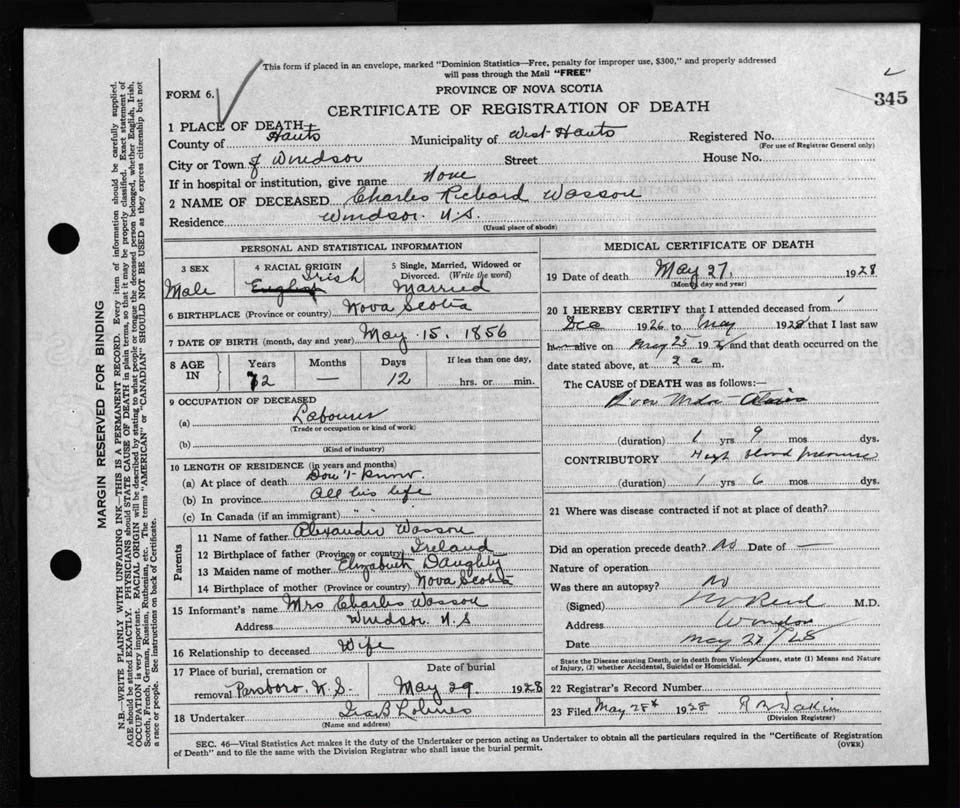 This form if placed in an envelope, marked "Dominion Statistics—Free, penalty for improper use, $300," and properly addressed
will pass through the Mail "FREE"
FORM 6.
PROVINCE OF NOVA SCOTIA
345
CERTIFICATE OF REGISTRATION OF DEATH
1 PLACE OF DEATH—
County of Hants Municipality of West Hants Registered No.
(For use of Registrar General only)
City or Town of Windsor Street House No.
If in hospital or institution, give name None
2 NAME OF DECEASED Charles Richard Wasson
Residence Windsor. N.S.
(Usual place of abode)
PERSONAL AND STATISTICAL INFORMATION
3 SEX 4 RACIAL ORIGIN 5 Single, Married, Widowed or Divorced. (Write the word)
Male English Irish Married
6 BIRTHPLACE (Province or country) Nova Scotia
7 DATE OF BIRTH (month, day and year) May. 15. 1856
8 AGE IN Years Months Days If less than one day,
72 — 12 hrs. or min.
9 OCCUPATION OF DECEASED
(a) Labourer
(Trade or occupation or kind of work)
(b)
(Kind of industry)
10 LENGTH OF RESIDENCE (in years and months)
(a) At place of death Don't know.
(b) In province All his life
(c) In Canada (if an immigrant) " "
Parents
11 Name of father Alexander Wasson
12 Birthplace of father (Province or country) Ireland
13 Maiden name of mother Elizabeth Daughty
14 Birthplace of mother (Province or country) Nova Scotia
15 Informant's name Mrs Charles Wasson
Address Windsor. N.S
16 Relationship to deceased Wife
17 Place of burial, cremation or removal Parsboro, N.S. Date of burial May 29. 1928
18 Undertaker Ira B Holmes
(Name and address)
MEDICAL CERTIFICATE OF DEATH
19 Date of death May 27, 1928
(Month, day and year)
20 I HEREBY CERTIFY that I attended deceased from
Dec 1926 to May 1928 that I last saw
alive on May 25 192 and that death occurred on the
date stated above, at 2 a m.
The CAUSE of DEATH was as follows:—
(duration) 1 yrs 9 mos dys.
CONTRIBUTORY High blood pressure
(duration) 1 yrs 6 mos dys.
21 Where was disease contracted if not at place of death?
Did an operation precede death? No Date of —
Nature of operation
Was there an autopsy? No
(Signed) Reid M.D.
Address Windsor
Date May 27/28
State the Disease causing Death, or in death from Violent Causes, state (1) Means and Nature
of Injury, (2) whether Accidental, Suicidal or Homicidal.
22 Registrar's Record Number
23 Filed May 28th 1928
(Division Registrar)
SEC. 46—Vital Statistics Act makes it the duty of the Undertaker or person acting as Undertaker to obtain all the particulars required in the "Certificate of Registration
of Death" and to file the same with the Division Registrar who shall issue the burial permit.
(OVER)
MARGIN RESERVED FOR BINDING
N.B.—WRITE PLAINLY WITH UNFADING INK—THIS IS A PERMANENT RECORD. Every item of information should be carefully supplied.
AGE should be stated EXACTLY. PHYSICIANS should STATE CAUSE OF DEATH in plain terms, so that it may be properly classified. Exact statement of
OCCUPATION is very important. RACIAL ORIGIN will be described by stating to what people or tongue the deceased person belonged, whether English, Irish,
Scotch, French, German, Russian, Ruthenian, etc. The terms "AMERICAN" or "CANADIAN" SHOULD NOT BE USED as they express citizenship but not
a race or people. See instructions on back of Certificate.